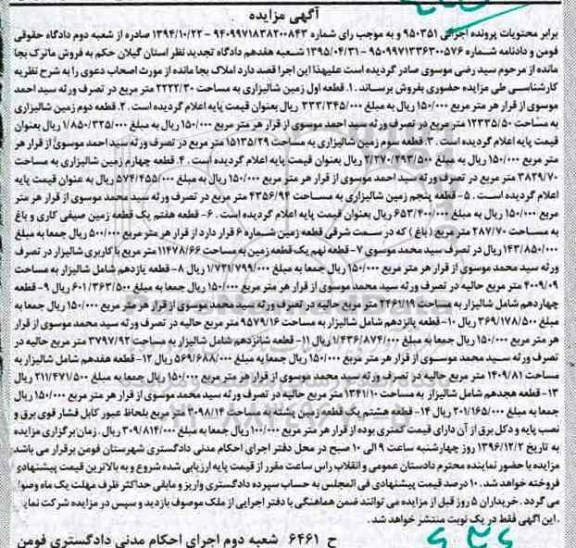 آگهی مزایده
برابر محتویات پرونده اجرائی ۹۵۰۳۵۱ و به موجب رای شماره ۹۴۰۹۹۷۱۸۳۸۲۰۰۸۴۳ - ۱۳۹۴/۱۰/۲۲ صادره از شعبه دوم دادگاه حقوقی
فومن و دادنامه شماره ۹۵۰۹۹۷۱۳۳۶۳۰۰۵۷۶ - ۱۳۹۵/۰۴/۳۱ شعبه هفدهم دادگاه تجدید نظر استان گیلان حکم به فروش ماترک بجا
مانده از مرحوم سید رضی موسوی صادر گردیده است علیهذا این اجرا قصد دارد املاک بجا مانده از مورث اصحاب دعوی را به شرح نظریه
کارشناسی طی مزایده حضوری بفروش برساند. ۱. قطعه اول زمین شالیزاری به مساحت ۲۲۲۲/۳۰ متر مربع در تصرف ورثه سید احمد
موسوی از قرار هر متر مربع ۱۵۰/۰۰۰ ریال به مبلغ ۳۳۳/۳۴۵/۰۰۰ ریال بعنوان قیمت پایه اعلام گردیده است. ۲. قطعه دوم زمین شالیزاری
به مساحت ۱۲۳۳۵/۵۰ متر مربع در تصرف ورثه سید احمد موسوی از قرار هر متر مربع ۱۵۰/۰۰۰ ریال به مبلغ ۱/۸۵۰/۳۲۵/۰۰۰ ریال بعنوان
قیمت پایه اعلام گردیده است. ۳. قطعه سوم زمین شالیزاری به مساحت ۱۵۱۳۵/۲۹ متر مربع در تصرف ورثه سید احمد موسوی از قرار هر
متر مربع ۱۵۰/۰۰۰ ریال به مبلغ ۲/۲۷۰/۲۹۳/۵۰۰ ریال بعنوان قیمت پایه اعلام گردیده است. ۴. قطعه چهارم زمین شالیزاری به مساحت
۳۸۲۹/۷۰ متر مربع در تصرف ورثه سید احمد موسوی از قرار هر متر مربع ۱۵۰/۰۰۰ ریال به مبلغ ۵۷۴/۴۵۵/۰۰۰ ریال به عنوان قیمت پایه
اعلام گردیده است. ۵- قطعه پنجم زمین شالیزاری به مساحت ۴۳۵۶/۹۴ متر مربع در تصرف ورثه سید محمد موسوی از قرار هر متر
مربع ۱۵۰/۰۰۰ ریال به مبلغ ۶۵۳/۴۰۰/۰۰۰ ریال به عنوان قیمت پایه اعلام گردیده است. ۶- قطعه هفتم یک قطعه زمین صیفی کاری و باغ
به مساحت ۲۸۷/۷۰ متر مربع (باغ) که در سمت شرقی قطعه زمین شماره ۶ قرار دارد از قرار هر متر مربع ۵۰۰/۰۰۰ ریال جمعا به مبلغ
۱۴۳/۸۵۰/۰۰۰ ریال در تصرف سید محمد موسوی ۷- قطعه نهم یک قطعه زمین به مساحت ۱۱۴۷۸/۶۶ متر مربع با کاربری شالیزار در تصرف
ورثه سید محمد موسوی از قرار هر متر مربع ۱۵۰/۰۰۰ ریال جمعا به مبلغ ۱/۷۲۱/۷۹۹/۰۰۰ ریال ۸- قطعه یازدهم شامل شالیزار به مساحت
۴۰۰۹/۰۹ متر مربع حالیه در تصرف ورثه سید محمد موسوی از قرار هر متر مربع ۱۵۰/۰۰۰ ریال جمعا به مبلغ ۶۰۱/۳۶۳/۵۰۰ ریال ۹- قطعه
چهاردهم شامل شالیزار به مساحت ۲۴۶۱/۱۹ متر مربع حالیه در تصرف ورثه سید محمد موسوی از قرار هر متر مربع ۱۵۰/۰۰۰ ریال جمعا به
مبلغ ۳۶۹/۱۷۸/۵۰۰ ریال ۱۰- قطعه پانزدهم شامل شالیزار به مساحت ۹۵۷۹/۱۶ متر مربع حالیه در تصرف ورثه سید محمد موسوی از قرار
هر متر مربع ۱۵۰/۰۰۰ ریال جمعا به مبلغ ۱/۴۳۶/۸۷۴/۰۰۰ ریال ۱۱- قطعه شانزدهم شامل شالیزار به مساحت ۳۷۹۷/۹۲ متر مربع حالیه در
تصرف ورثه سید محمد موسوی از قرار هر متر مربع ۱۵۰/۰۰۰ ریال جمعا به مبلغ ۵۶۹/۶۸۸/۰۰۰ ریال ۱۲- قطعه هفدهم شامل شالیزار به
مساحت ۱۴۰۹/۸۱ متر مربع حالیه در تصرف ورثه سید محمد موسوی از قرار هر متر مربع ۱۵۰/۰۰۰ ریال جمعا به مبلغ ۲۱۱/۴۷۱/۵۰۰ ریال
۱۳- قطعه هجدهم شامل شالیزار به مساحت ۱۳۴۱/۱۰ متر مربع حالیه در تصرف ورثه سید محمد موسوی از قرار هر متر مربع ۱۵۰/۰۰۰ ریال
جمعا به مبلغ ۲۰۱/۱۶۵/۰۰۰ ریال ۱۴- قطعه هشتم یک قطعه زمین پشته به مساحت ۳۰۹۸/۱۴ متر مربع بلحاظ عبور کابل فشار قوی برق و
نصب پایه و دکل برق از آن دارای قیمت کمتری بوده از قرار هر متر مربع ۱۰۰/۰۰۰ ریال جمعا به مبلغ ۳۰۹/۸۱۴/۰۰۰ ریال. زمان برگزاری مزایده
به تاریخ ۱۳۹۶/۱۲/۲ روز چهارشنبه ساعت ۹ الی ۱۰ صبح در محل دفتر اجرای احکام مدنی دادگستری شهرستان فومن برقرار می باشد.
مزایده با حضور نماینده محترم دادستان عمومی و انقلاب راس ساعت مقرر از قیمت پایه ارزیابی شده شروع و به بالاترین قیمت پیشنهادی
فروخته خواهد شد. ۱۰ درصد قیمت پیشنهادی فی المجلس به حساب سپرده دادگستری واریز و مابقی حداکثر ظرف مهلت یک ماه وصول
می گردد. خریداران ۵ روز قبل از مزایده می توانند ضمن هماهنگی با دفتر اجرایی از ملک موصوف بازدید و سپس در مزایده شرکت نماید
.این آگهی فقط در یک نوبت منتشر خواهد شد.
ح ۶۴۶۱ شعبه دوم اجرای احکام مدنی دادگستری فومن